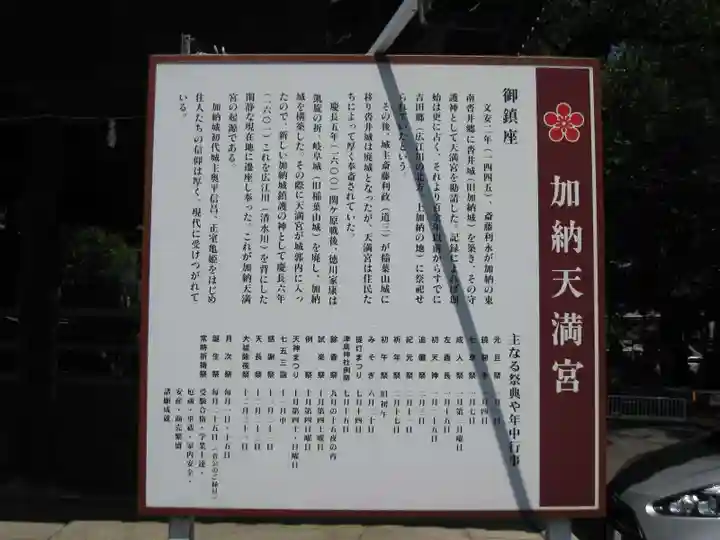 加納天満宮
御鎮座
文安二年(一四四五)、斎藤利永が加納の東
南沓井郷に沓井城(旧加納城)を築き、その守
護神として天満宮を勧請した。記録によれば創
始は更に古く、それより百余年以前からすでに
吉田郷(広江川の北方、上加納の地)に祭祀せ
られていたという。
その後、城主斎藤利政(道三)が稲葉山城に
移り沓井城は廃城となったが、天満宮は住民た
ちによって厚く奉斎されていた。
慶長五年(一六〇〇)関ケ原戦後、徳川家康は
凱旋の折、岐阜城(旧稲葉山城)を廃し、加納
城を構築した。その際に天満宮が城郭内に入っ
たので、新しい加納城鎮護の神として慶長六年
(一六〇一)これを広江川(清水川)を背にした
閑静な現在地に遷座し奉った。これが加納天満
宮の起源である。
加納城初代城主奥平信昌、正室亀姫をはじめ
住人たちの信仰は厚く、現代に受けつがれて
いる。
主なる祭典や年中行事
元旦祭 一月一日
七草祭 一月七日
成人祭 一月第二月曜日
左義長 一月十五日
初天神 一月二十五日
追儺祭 二月三日
紀元祭 二月十一日
祈年祭 二月十七日
初午祭 旧初午
みそぎ 六月三十日
提灯まつり 七月十四日
津島神社例祭 七月十五日
除香祭 九月の十五夜の内
試楽祭 十月第四土曜日
例祭 十月第四日曜日
天神まつり 十月第四土・日曜日
七五三詣 十一月中
感謝祭 十一月二十三日
天長祭 十二月二十三日
大祓除夜祭 十二月三十一日
月次祭 毎月一日・十五日
誕生祭 毎月二十五日
常時祈祷祭 受験合格・学業上達・
厄祓・車祓・家内安全・
安産・商売繁盛
諸願成就